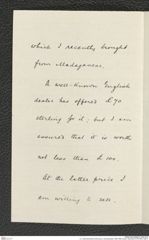 which I recently brought
from Madagascar.
A well-known English
dealer has offered £70
sterling for it; but I am
assured that it is worth
not less than £100.
At the latter price I
am willing to sell.